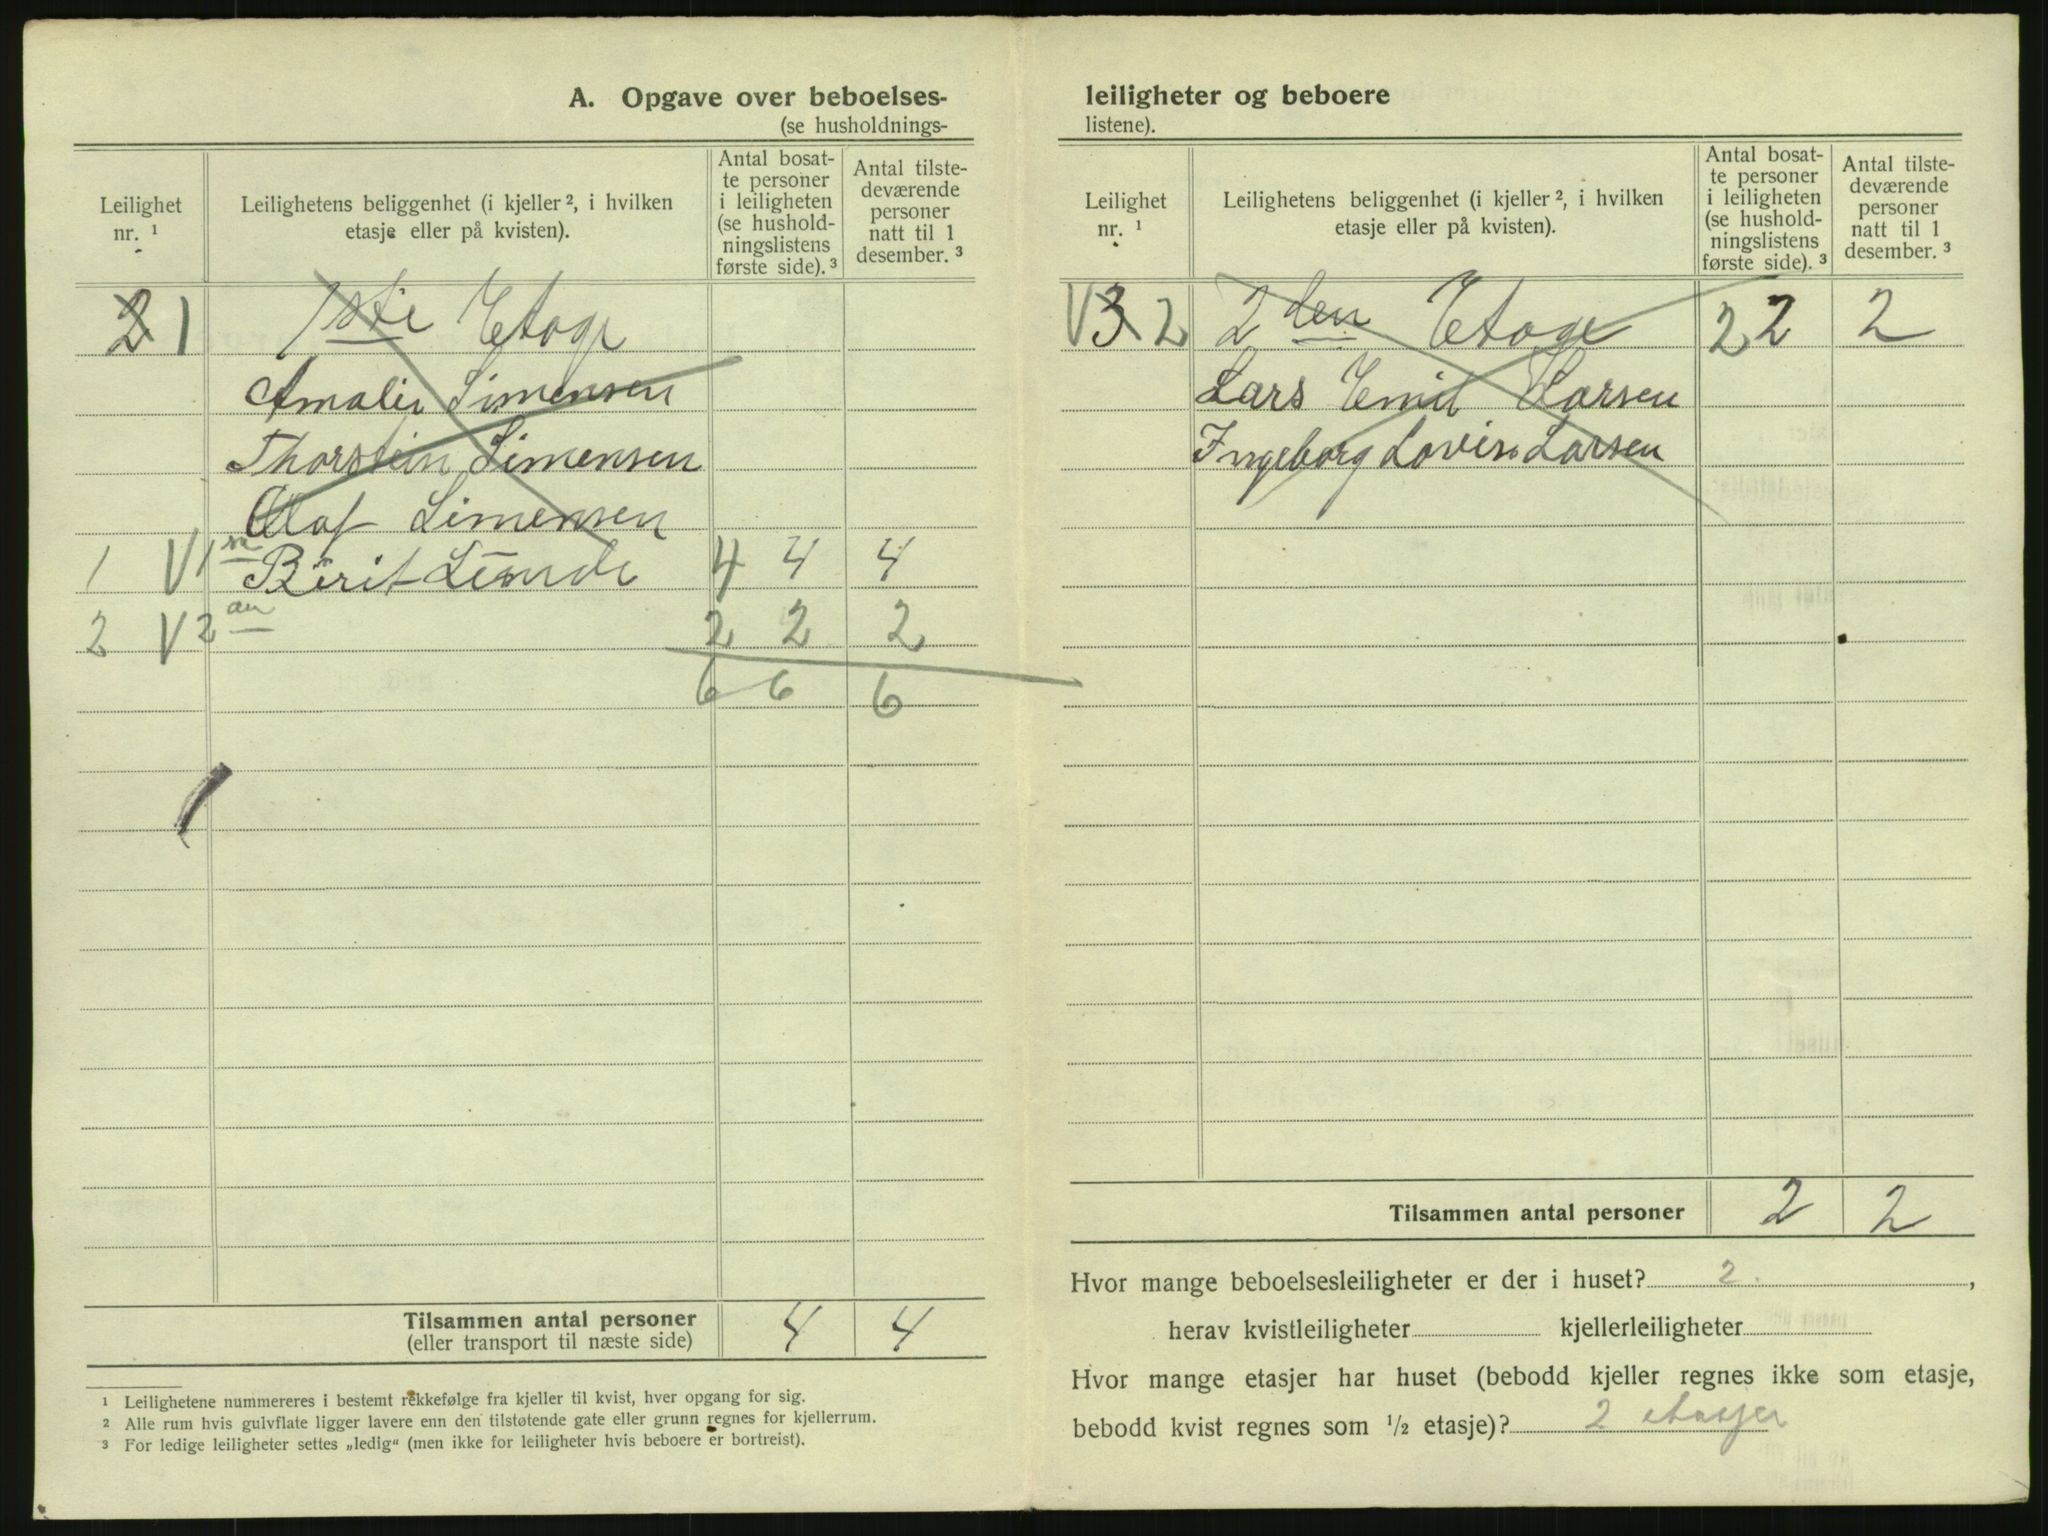 A. Opgave over beboelses-
(se husholdnings-
Leilighet nr. ¹
Leilighetens beliggenhet (i kjeller ², i hvilken etasje eller på kvisten).
Antal bosat-
te personer
i leiligheten
(se hushold-
ningslistens
første side). ³
Antal tilste-
deværende
personer
natt til 1
desember. ³
2 1 1ste Etage
Amalie Simensen
Thorstein Simensen
Olaf Simensen
1 V 1 Berit 4 4 4
2 V 2 2 2 2
6 6 6
Tilsammen antal personer 4 4
(eller transport til næste side)
¹ Leilighetene nummereres i bestemt rekkefølge fra kjeller til kvist, hver opgang for sig.
² Alle rum hvis gulvflate ligger lavere enn den tilstøtende gate eller grunn regnes for kjellerrum.
³ For ledige leiligheter settes „ledig“ (men ikke for leiligheter hvis beboere er bortreist).
leiligheter og beboere
listene).
Leilighet nr. ¹
Leilighetens beliggenhet (i kjeller ², i hvilken etasje eller på kvisten).
Antal bosat-
te personer
i leiligheten
(se hushold-
ningslistens
første side). ³
Antal tilste-
deværende
personer
natt til 1
desember. ³
V 3 2 2den Etage 2 2 2
Lars Emil Larsen
Ingeborg Lovise Larsen
Tilsammen antal personer 2 2
Hvor mange beboelsesleiligheter er der i huset? 2. ,
herav kvistleiligheter kjellerleiligheter
Hvor mange etasjer har huset (bebodd kjeller regnes ikke som etasje,
bebodd kvist regnes som ¹/₂ etasje)? 2 etasjer